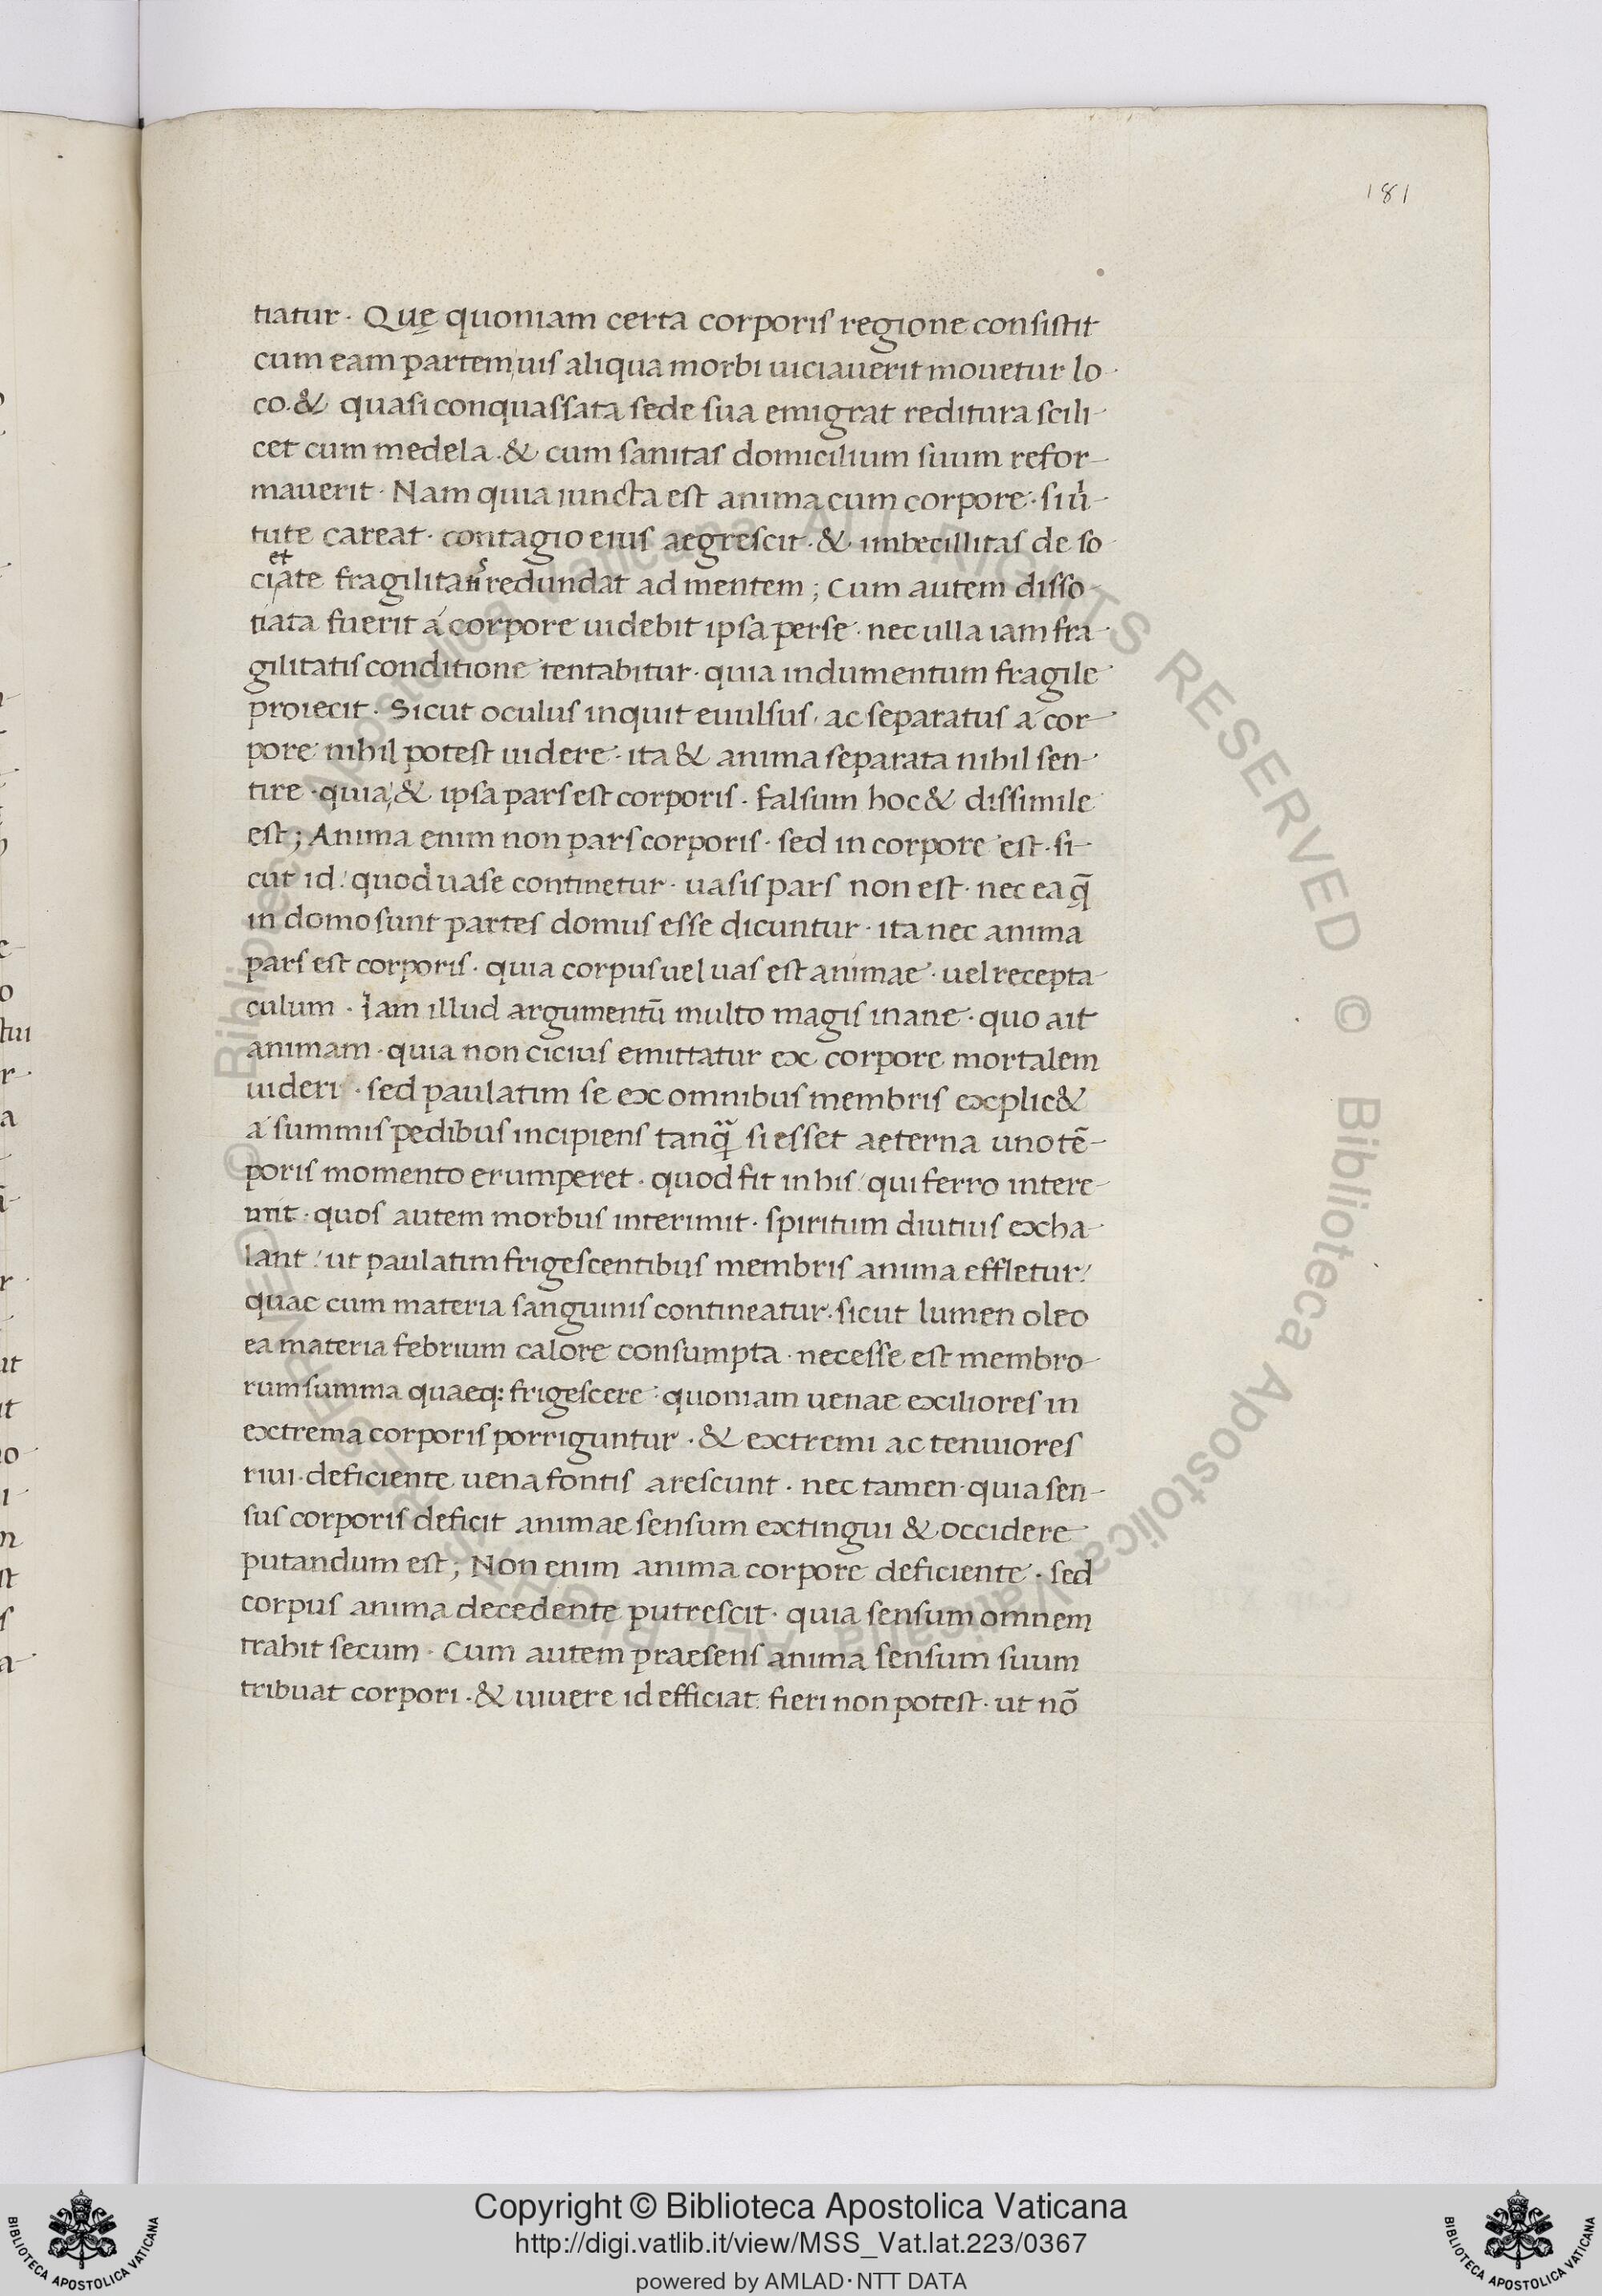 181
tiatur · Quę quoniam certa corporis regione consistit
cum eam partem uis aliqua morbi uiciauerit mouetur lo-
co · & quasi conquassata sede sua emigrat reditura scili-
cet cum medela · & cum sanitas domicilium suum refor-
mauerit · Nam quia iuncta est anima cum corpore · si uir-
tute careat · contagio eius aegrescit · & imbecillitas de so
et s
ciate fragilitati redundat ad mentem ; Cum autem disso-
tiata fuerit á corpore uidebit ipsa perse · nec ulla iam fra-
gilitatis conditione tentabitur · quia indumentum fragile
proiecit · Sicut oculus inquit euulsus , ac separatus á cor-
pore nihil potest uidere · ita & anima separata nihil sen-
tire · quia & ipsa pars est corporis · falsum hoc & dissimile
est ; Anima enim non pars corporis · sed in corpore est · si-
cut id : quod uase continetur · uasis pars non est · nec ea q̄
in domo sunt partes domus esse dicuntur · ita nec anima
pars est corporis · quia corpus uel uas est animae · uel recepta-
culum · Iam illud argumentū multo magis inane · quo ait
animam · quia non cicius emittatur ex corpore mortalem
uideri · sed paulatim se ex omnibus membris explic&
á summis pedibus incipiens tanq̄ si esset aeterna uno tē-
poris momento erumperet · quod fit in his : qui ferro intere-
unt · quos autem morbus interimit · spiritum diutius exha-
lant : ut paulatim frigescentibus membris anima effletur :
quae cum materia sanguinis contineatur · sicut lumen oleo
ea materia febrium calore consumpta · necesse est membro-
rum summa quaeq; frigescere · quoniam uenae exiliores in
extrema corporis porriguntur · & extremi ac tenuiores
riui · deficiente uena fontis arescunt · nec tamen · quia sen-
sus corporis deficit animae sensum extingui & occidere
putandum est ; Non enim anima corpore deficiente · sed
corpus anima decedente putrescit · quia sensum omnem
trahit secum · Cum autem praesens anima sensum suum
tribuat corpori · & uiuere id efficiat : fieri non potest · ut nō
© Biblioteca Apostolica Vaticana ALL RIGHTS RESERVED © Biblioteca Apostolica Vaticana ALL RIGHTS RESERVED
Copyright © Biblioteca Apostolica Vaticana
http://digi.vatlib.it/view/MSS_Vat.lat.223/0367
powered by AMLAD·NTT DATA
BIBLIOTECA APOSTOLICA VATICANA
BIBLIOTECA APOSTOLICA VATICANA